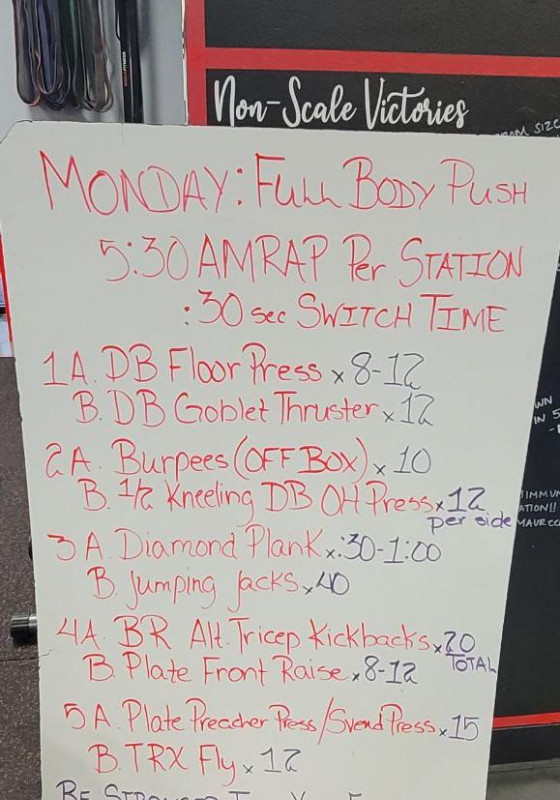 Non-Scale Victories
SIZE
MONDAY: FULL BODY PUSH
5:30 AMRAP Per STATION
:30 sec SWITCH TIME
1A. DB Floor Press x 8-12
B. DB Goblet Thruster x 12
2A. Burpees (OFF BOX) x 10
B. 1/2 Kneeling DB OH Press x 12
per side
3A. Diamond Plank x :30-1:00
B. Jumping Jacks x 40
4A. BR Alt. Tricep Kickbacks x 20
TOTAL
B. Plate Front Raise x 8-12
5A. Plate Preacher Press/Svend Press x 15
B. TRX Fly x 12
BE